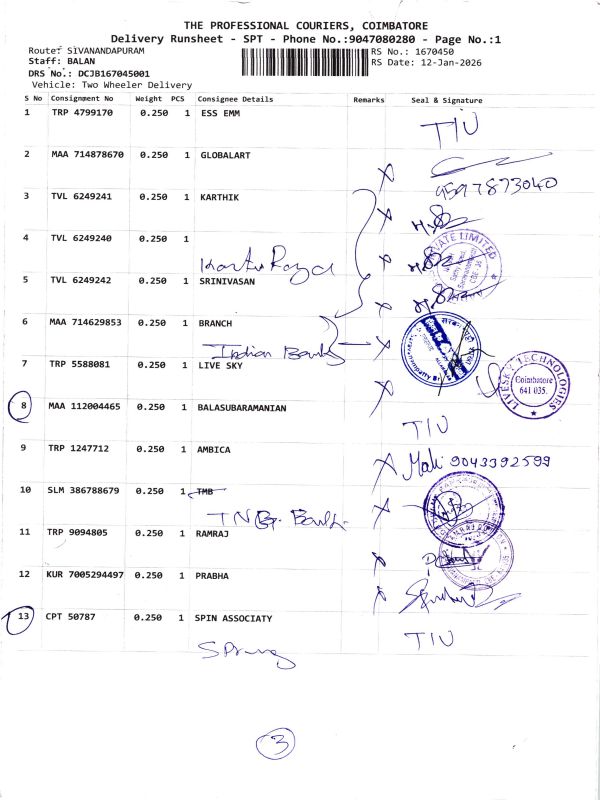 THE PROFESSIONAL COURIERS, COIMBATORE
Delivery Runsheet - SPT - Phone No.:9047080280 - Page No.:1
Route: SIVANANDAPURAM
RS No.: 1670450
Staff: BALAN
RS Date: 12-Jan-2026
DRS No.: DCJB167045001
Vehicle: Two Wheeler Delivery
S No Consignment No Weight PCS Consignee Details Remarks Seal & Signature
1 TRP 4799170 0.250 1 ESS EMM
TIU
2 MAA 714878670 0.250 1 GLOBALART
9597873040
3 TVL 6249241 0.250 1 KARTHIK
4 TVL 6249240 0.250 1
PRIVATE LIMITED
5 TVL 6249242 0.250 1 SRINIVASAN
6 MAA 714629853 0.250 1 BRANCH
Indian Bank
7 TRP 5588081 0.250 1 LIVE SKY
LIVESKY TECHNOLOGIES
Coimbatore
641 035.
8 MAA 112004465 0.250 1 BALASUBARAMANIAN
TIU
9 TRP 1247712 0.250 1 AMBICA
Mali 9043392599
10 SLM 386788679 0.250 1 TMB
TNG. Bank
11 TRP 9094805 0.250 1 RAMRAJ
12 KUR 7005294497 0.250 1 PRABHA
13 CPT 50787 0.250 1 SPIN ASSOCIATY
TIU
3